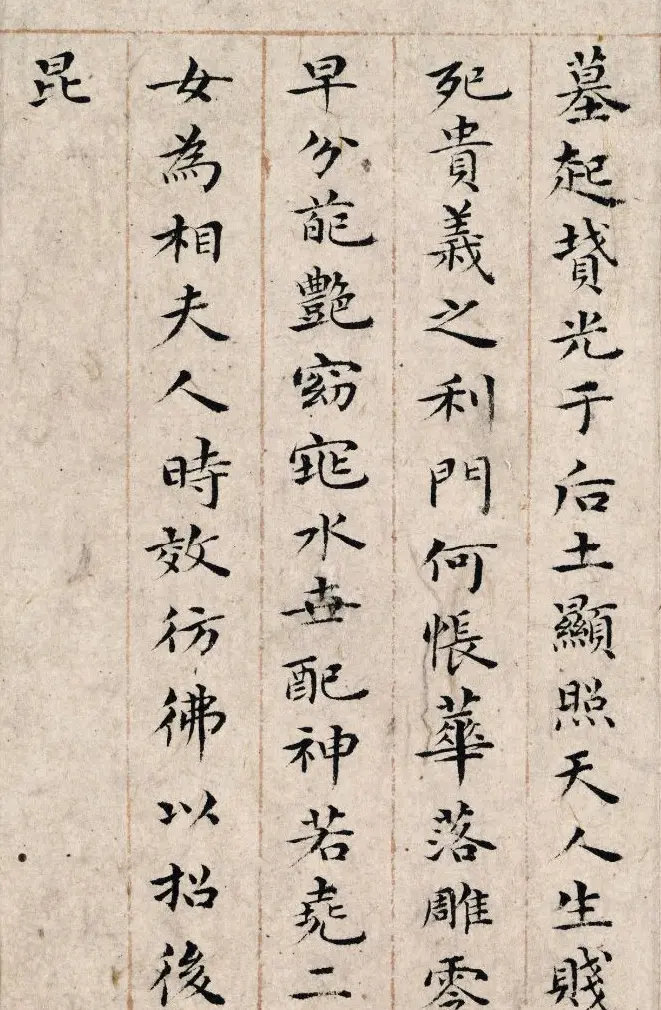 墓起墳光于后土顯照天人生賤
死貴義之利門何悵華落雕零
早分葩艷窈窕水世配神若堯二
女為相夫人時效彷彿以招後
昆